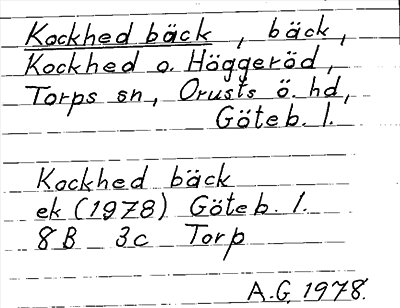 Kockhed bäck , bäck ,
Kockhed o. Häggeröd ,
Torps sn , Orusts ö. hd ,
Göteb. l.
Kockhed bäck
ek (1978) Göteb. l.
8B 3c Torp
A.G. 1978.